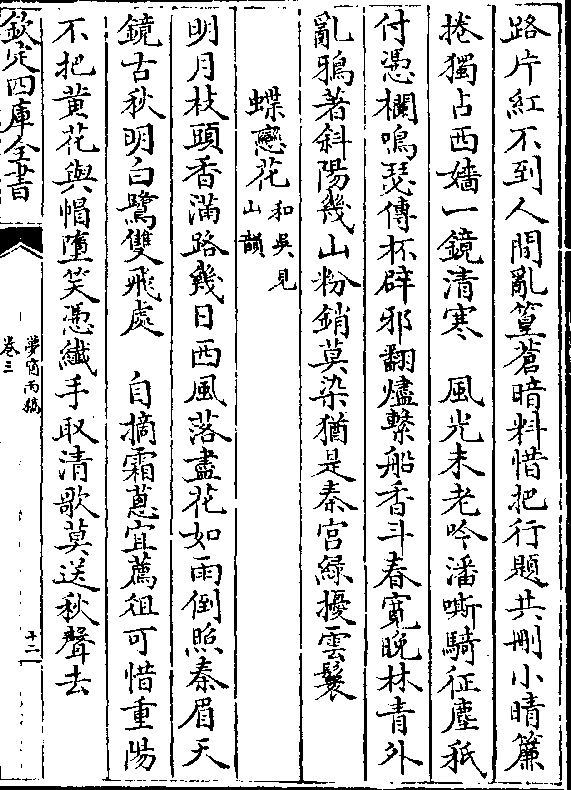 路片紅不到人間亂篁蒼暗料惜把行題共刪小晴簾
捲獨占西牆一鏡清寒　風光未老吟潘嘶騎征塵秖
付憑欄鳴瑟傳杯辟邪翻燼繫船香斗春寛晚林青外
亂鴉著斜陽幾山粉銷莫染猶是秦宮綠擾雲鬟
蝶戀花和吳見山韻
明月枝頭香滿路幾日西風落盡花如雨倒照秦眉天
鏡古秋明白鷺雙飛處　自摘霜蔥宜薦俎可惜重陽
不把黃花與帽墮笑憑纖手取清歌莫送秋聲去
欽定四庫全書
夢窗丙稿
卷三
十二